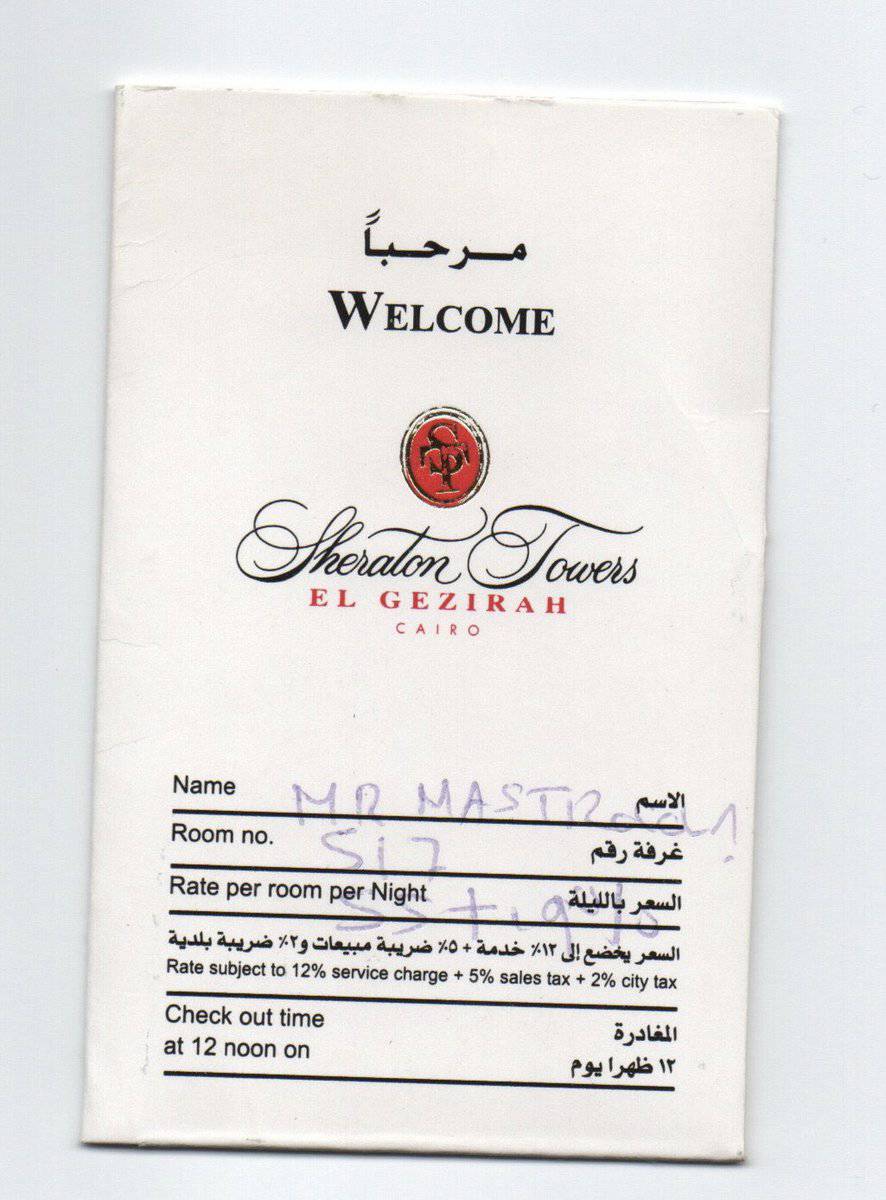 مرحباً
WELCOME
Sheraton Towers
EL GEZIRAH
CAIRO
Name MR الاسم
Room no. 517 غرفة رقم
Rate per room per Night 55 + 19% السعر بالليلة
السعر يخضع إلى ١٢٪ خدمة + ٥٪ ضريبة مبيعات و٢٪ ضريبة بلدية
Rate subject to 12% service charge + 5% sales tax + 2% city tax
Check out time المغادرة
at 12 noon on ١٢ ظهرا يوم